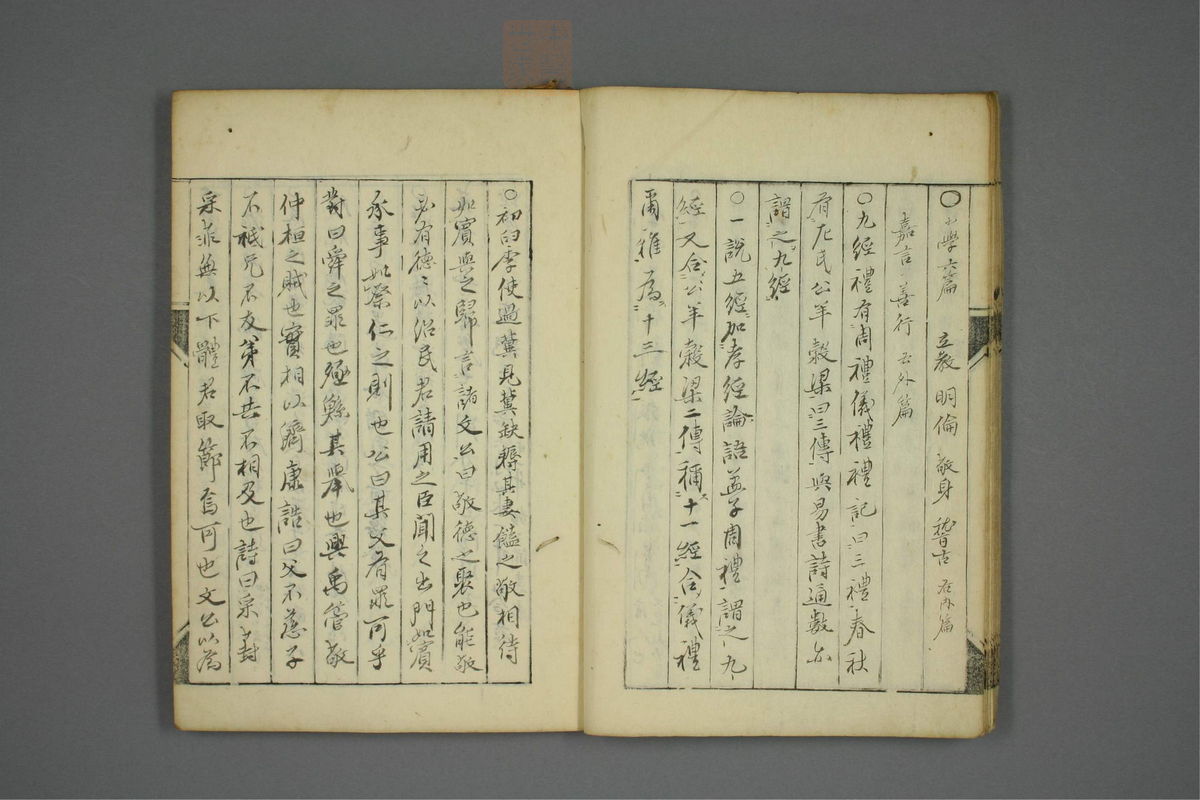 ○小學六篇 立教 明倫 敬身 稽古 右內篇
嘉言 善行 右外篇
○九經禮有周禮儀禮禮記曰三禮春秋
有左氏公羊穀梁曰三傳與易書詩通數亦
謂之九經
○一說五經加孝經論語孟子周禮謂之九
經又合公羊穀梁二傳稱十一經合儀禮
爾雅為十三經
○初臼季使過冀見冀缺耨其妻饁之敬相待
如賓與之歸言諸文公曰敬德之聚也能敬
必有德〻以治民君請用之臣聞之出門如賓
承事如祭仁之則也公曰其父有罪可乎
對曰舜之罪也殛鯀其擧也興禹管敬
仲桓之賊也實相以濟康誥曰父不慈子
不祗兄不友弟不共不相及也詩曰采葑
采菲無以下體君取節焉可也文公以為